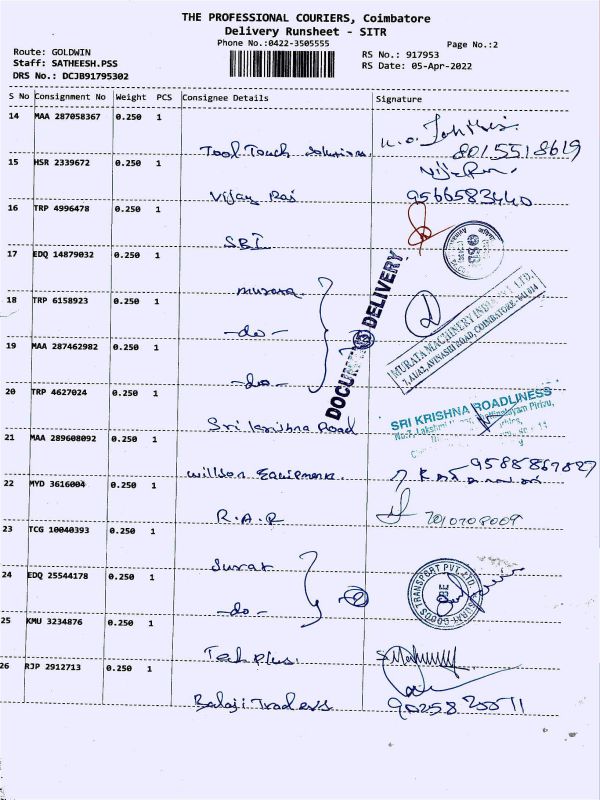 THE PROFESSIONAL COURIERS, Coimbatore
Delivery Runsheet - SITR
Phone No.:0422-3505555
Page No.:2
Route: GOLDWIN
Staff: SATHEESH.PSS
DRS No.: DCJB91795302
RS No.: 917953
RS Date: 05-Apr-2022
S No Consignment No Weight PCS Consignee Details Signature
14 MAA 287058367 0.250 1
Tool Touch Solutions 8015518619
15 HSR 2339672 0.250 1
Vijay Raj 9566583440
16 TRP 4996478 0.250 1
SBI
17 EDQ 14879032 0.250 1
murata
18 TRP 6158923 0.250 1
-do-
19 MAA 287462982 0.250 1
-do-
DOCUMENTS DELIVERY
MURATA MACHINERY INDIA PVT LTD.
AVINASHI ROAD, COIMBATORE - 641 014
20 TRP 4627024 0.250 1
Sri krishna Road
SRI KRISHNA ROADLINESS
21 MAA 289608092 0.250 1
Willson Equipments. 9588867827
22 MYD 3616004 0.250 1
R.A.R 7010708009
23 TCG 10040393 0.250 1
Surat
24 EDQ 25544178 0.250 1
-do-
TRANSPORT PVT. LTD.
25 KMU 3234876 0.250 1
Tech Plus.
26 RJP 2912713 0.250 1
Balaji Traders